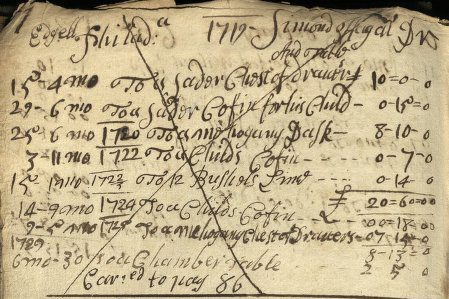 Edgell Philad:a 1719 Simond Dr
and Table
15 - 4 mo To a Sader Chest of Drawers 10 = 0 - 0
29 - 6 mo To a Sader Cofin for his Child - 0 - 15 = 0
25 - 6 mo 1720 To a mehogany Dask - 8 - 10 - 0
3 - 11 mo 1722 To a Childs Cofin - - - - 0 - 7 - 0
15 mo 1722/3 To 12 Bushels Lime - - 0 - 14 - 0
£ 20 = 6 = 0
14 - 9 mo 1724 To a Childs Cofin - - - 00 = 18 - 0
9 - mo To a mehogany Chest of Drawers - 07 - 0
1729
6 mo - 30 To a Chamber Table
Car:ed to pag 86